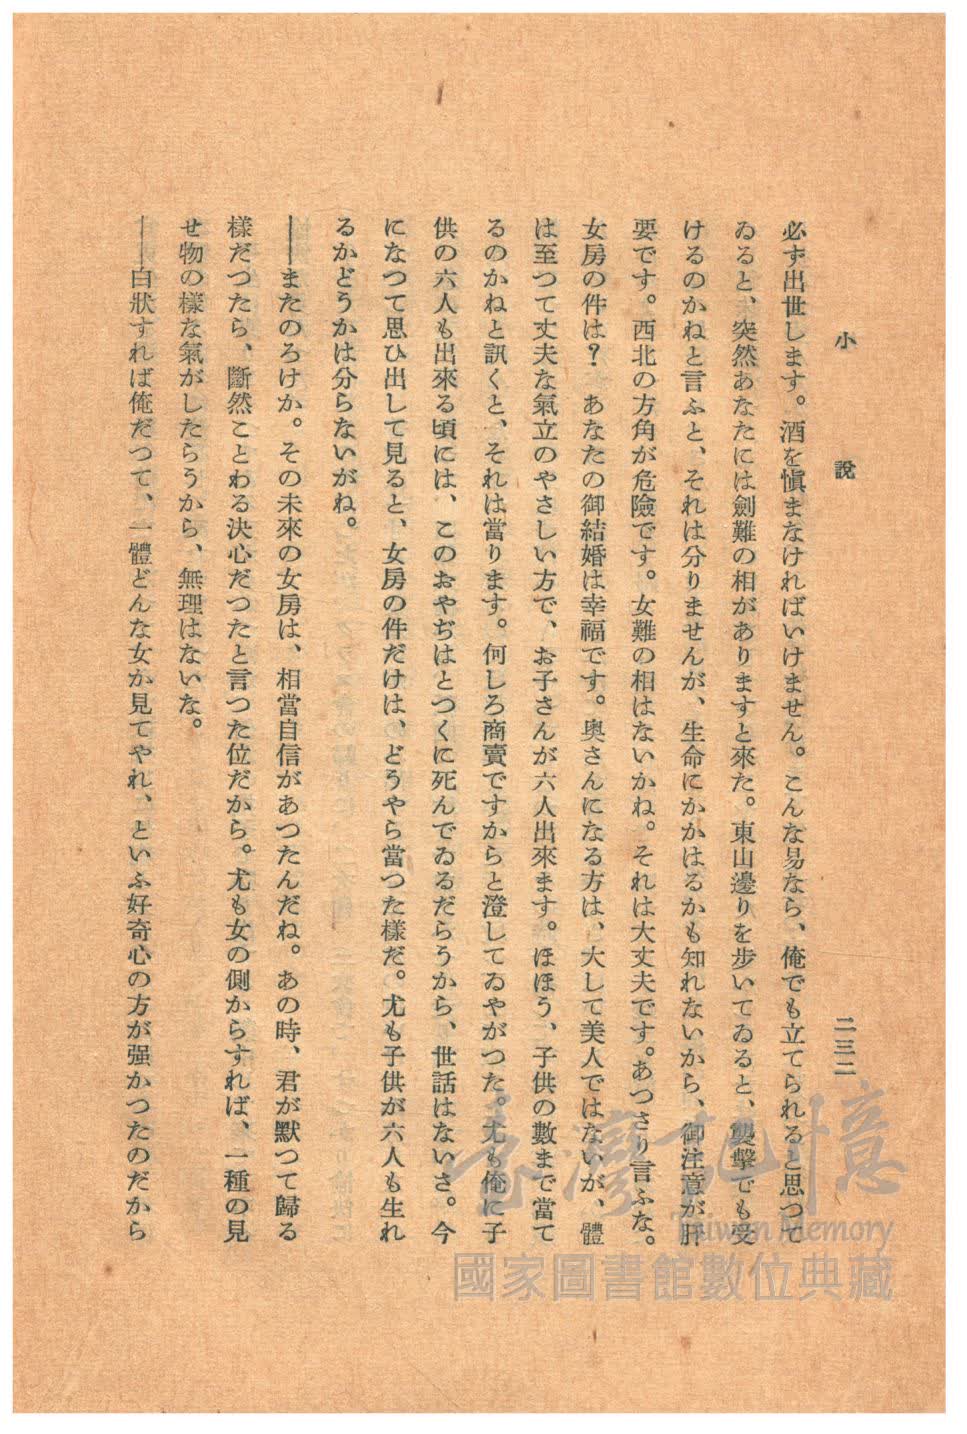 小說
二三二
必ず出世します。酒を愼まなければいけません。こんな易なら、俺でも立てられると思つて
ゐると、突然あなたには劍難の相がありますと來た。東山邊りを步いてゐると、襲擊でも受
けるのかねと言ふと、それは分りませんが、生命にかかはるかも知れないから、御注意が肝
要です。西北の方角が危險です。女難の相はないかね。それは大丈夫です。あつさり言ふな。
女房の件は？　あなたの御結婚は幸福です。奥さんになる方は、大して美人ではないが、體
は至つて丈夫な氣立のやさしい方で、お子さんが六人出來ます。ほほう、子供の數まで當て
るのかねと訊くと、それは當ります。何しろ商賣ですからと澄してゐやがつた。尤も俺に子
供の六人も出來る頃には、このおやぢはとつくに死んでゐるだらうから、世話はないさ。今
になつて思ひ出して見ると、女房の件だけは、どうやら當つた樣だ。尤も子供が六人も生れ
るかどうかは分らないがね。
――またのろけか。その未來の女房は、相當自信があつたんだね。あの時、君が默つて歸る
樣だつたら、斷然ことわる決心だつたと言つた位だから。尤も女の側からすれば、一種の見
せ物の樣な氣がしたらうから、無理はないな。
――白狀すれば俺だつて、一體どんな女か見てやれ、といふ好奇心の方が强かつたのだから
臺灣記憶
Taiwan Memory
國家圖書館數位典藏